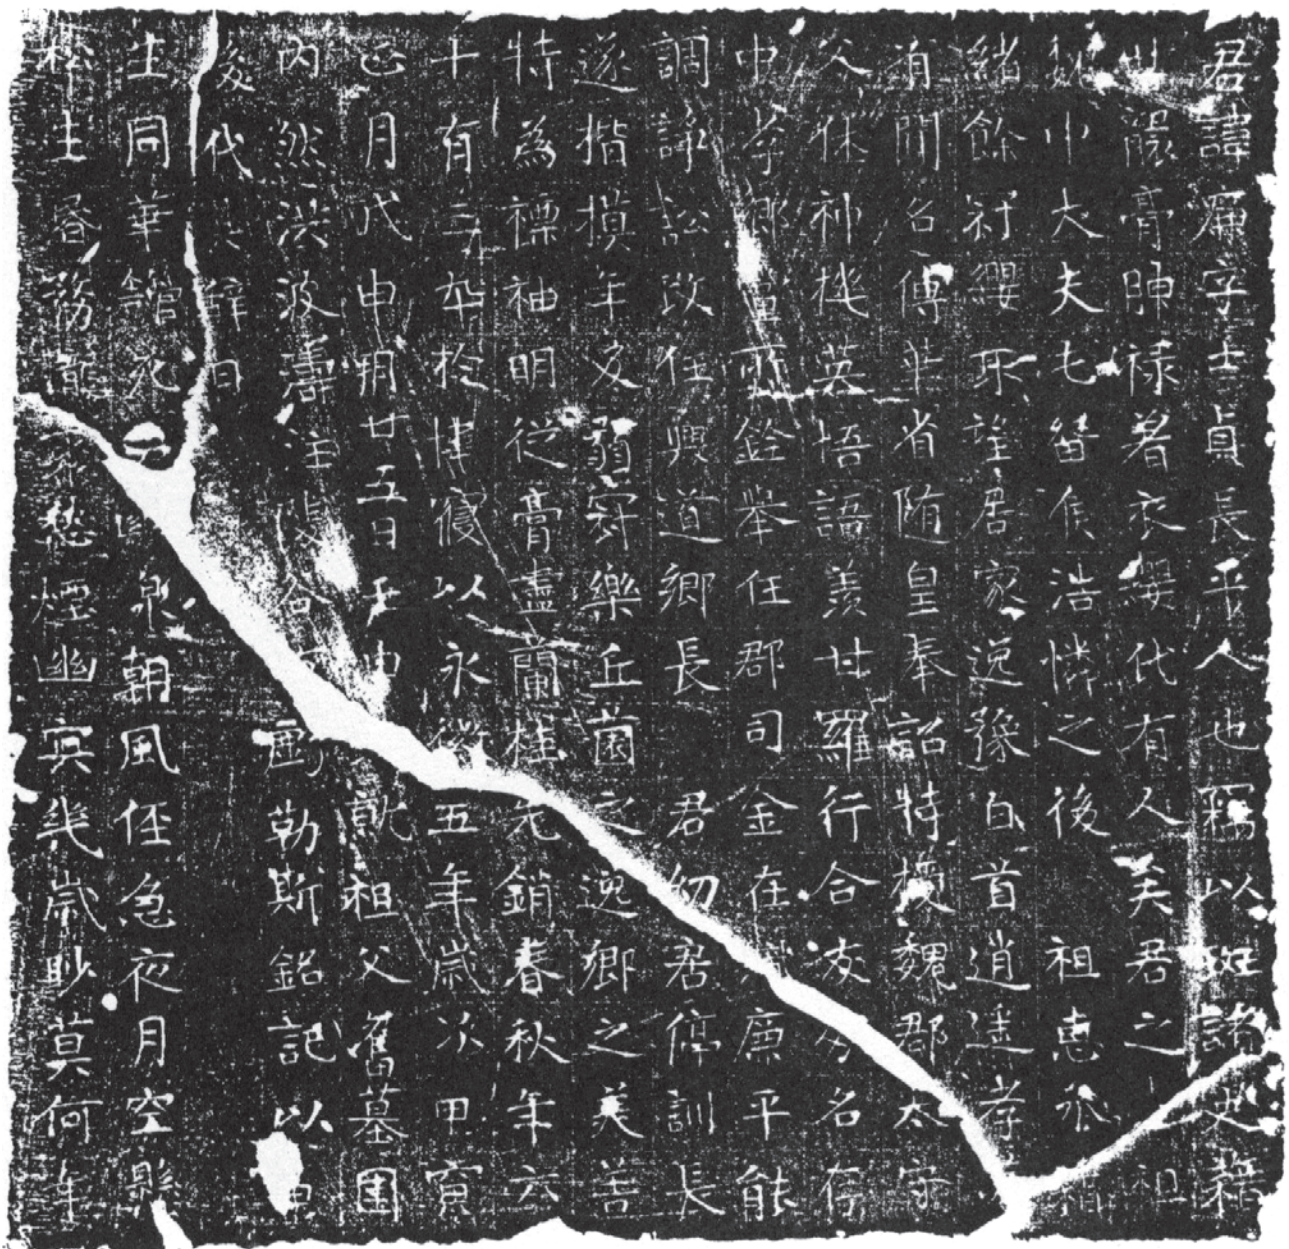 君諱廉字士貞長平人也稱以班諸史籍
世濃膏腴祿著衣纓代有人矣君之祖
魏中大夫七世侯浩憐之後 祖惠
緒餘冠纓不望居家逸豫白首逍遙孝
有聞名傳華省随皇奉詔特授魏郡太守
父林神機英悟語羡甘羅行合友名存
中孝鄉閭 銓舉任郡司金在 廉平能
調諍訟改任興道鄉長 君幼居停訓長
遂楷摸年文弱冠樂丘園之逸鄉之美善
特為標袖明從膏盡蘭桂光銷春秋年六
十有三卒於㨗寢以永徽五年歲次甲寅
正月戊申朔廿五日壬申 就祖父舊墓囯
内然洪波壽 勒斯銘記以
後代其辞曰
生同華館 泉朝風伍急夜月空懸
松土 不愁煙幽寅幾歲眇莫何年